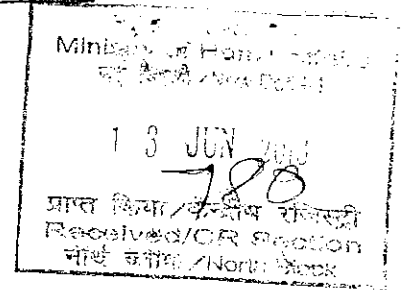 Ministry of Home
नई दिल्ली/New Delhi
13 JUN
788
प्राप्त किया/केन्द्रीय रजिस्ट्री
Received/CR Section
नॉर्थ ब्लॉक/North Block